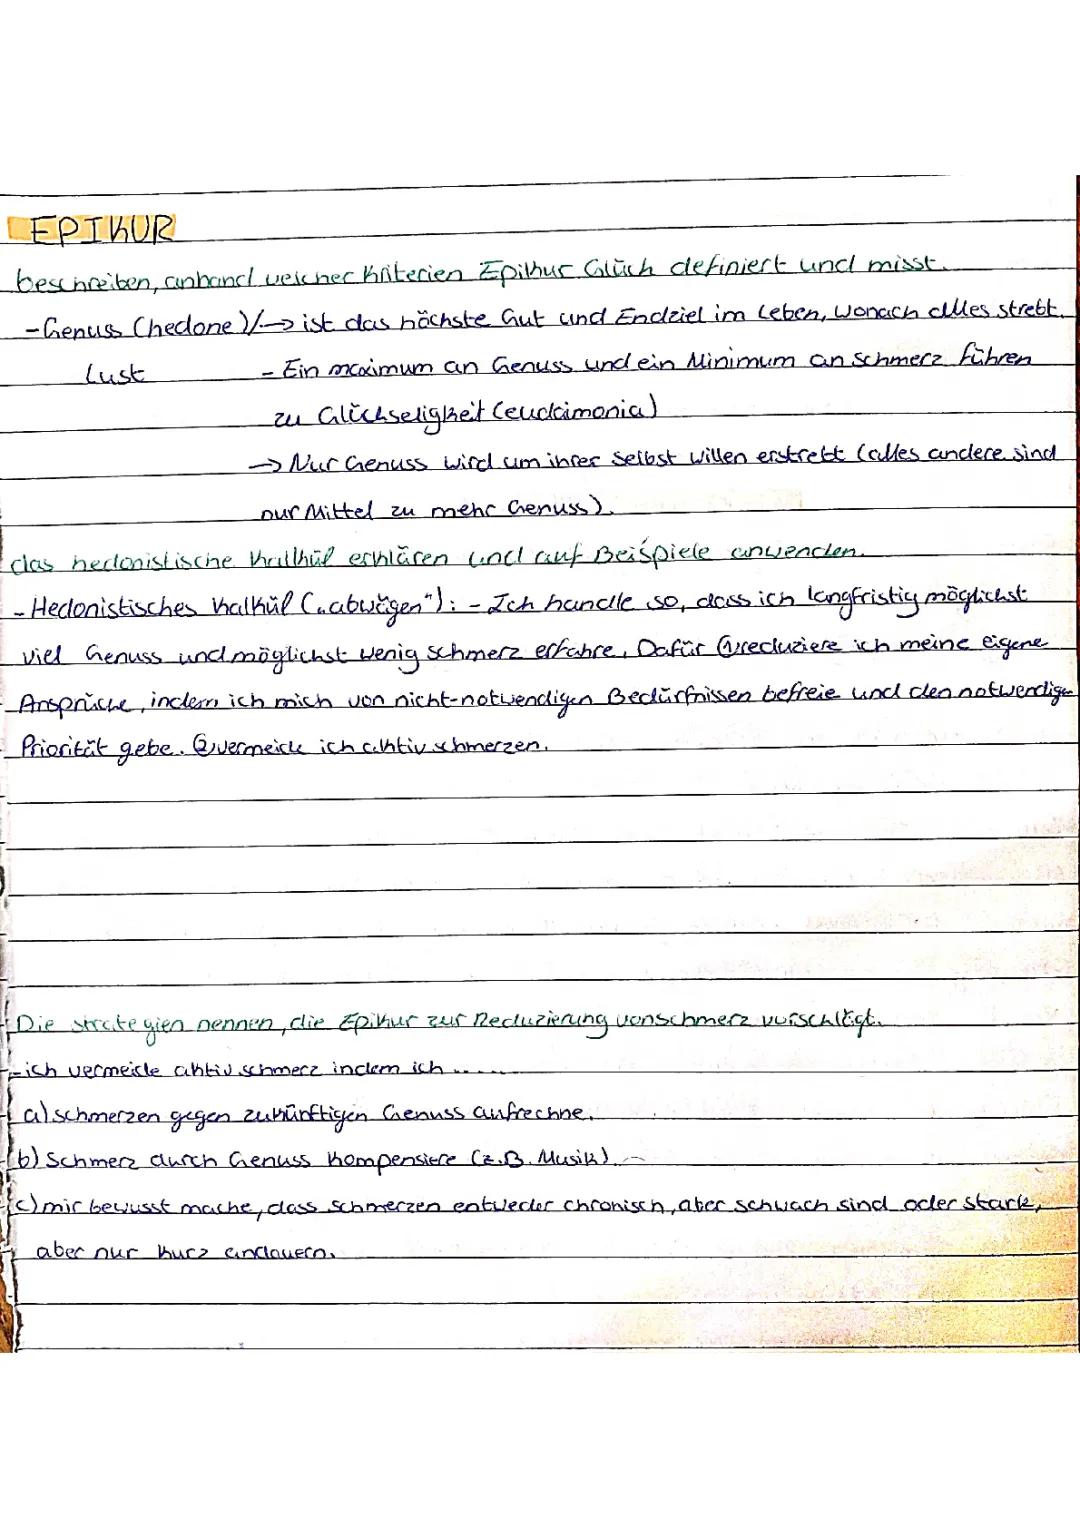 EPIKUR
beschreiben, anhand welcher Kriterien Epikur Glück definiert und misst.
- Genuss (hedone)/→ ist das höchste Gut und Endziel im Leben, wonach alles strebt.
Lust - Ein maximum an Genuss und ein Minimum an schmerz führen
zu Glückseligkeit (eudaimonia)
→ Nur Genuss wird um ihrer selbst willen erstrebt (alles andere sind
nur Mittel zu mehr Genuss).
das hedonistische Kalkül erklären und auf Beispiele anwenden.
- Hedonistisches Kalkül („abwägen"): - Ich handle so, dass ich langfristig möglichst
viel Genuss und möglichst wenig schmerz erfahre. Dafür ①reduziere ich meine eigene
Ansprüche, indem ich mich von nicht-notwendigen Bedürfnissen befreie und den notwendige
Priorität gebe. ②vermeide ich aktiv schmerzen.
Die strategien nennen, die Epikur zur Reduzierung von schmerz vorschlägt.
- ich vermeide aktiv schmerz indem ich .....
a) schmerzen gegen zukünftigen Genuss aufrechne.
b) Schmerz durch Genuss kompensiere (z.B. Musik).
c) mir bewusst mache, dass schmerzen entweder chronisch, aber schwach sind oder stark,
aber nur kurz andauern.